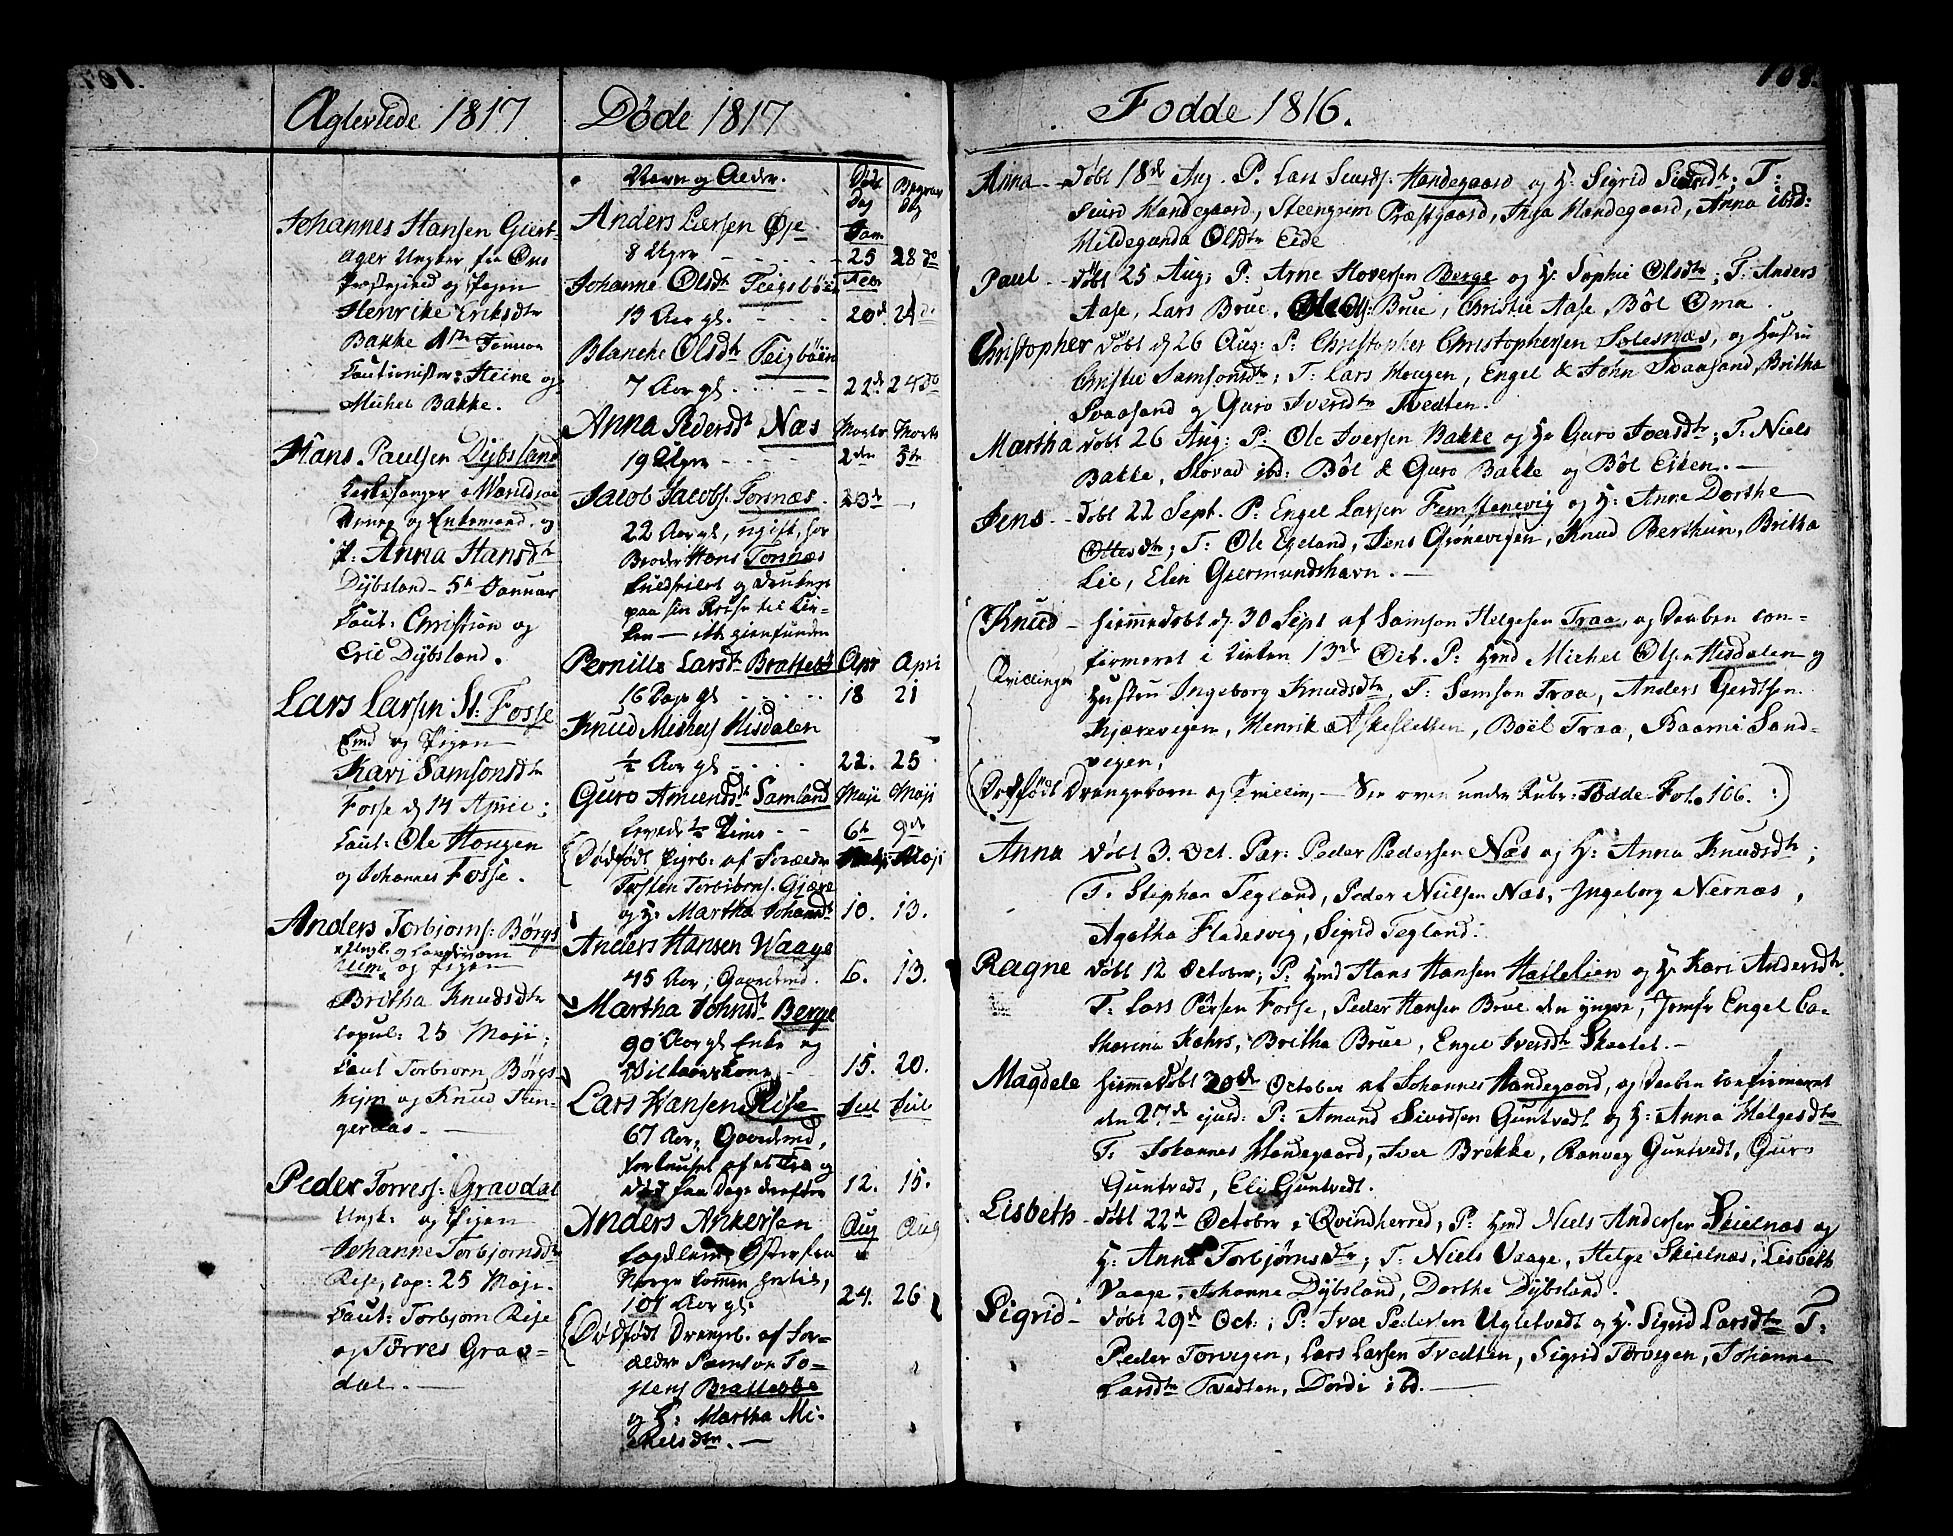 107.
Ægteviede 1817
Johannes Hansen Giert-
ager Ungkar fra Ous
Præstegield og Pigen
Henrike Eriksdtr
Bakke
Cautionister: Steine og
Michel Bakke.
Hans Paulsen Dybsland
Kirkesanger i
og Enkemand og
P: Anna Hansdtr
Dybsland - 5te Januar
Caut: Christian og
Eric Dybsland.
Lars Larsen St: Fosse
Emd og Pigen
Kari Samsonsdtr
Fosse d 14 April;
Caut: Ole Hougen
og Johannes Fosse.
Anders Torbjørns: Børgs
og Pigen
Britha Knudsdtr
copul: 25 Maji;
Caut Torbiørn Børgs-
hejm og Knud Tun-
geraas. —
Peder Torress: Gravdal
Ungk: og Pigen
Johanne Torbjørnsdtr
Rise, cop: 25 Maji.
Caut: Torbjørn Rise
og Törres Grav-
dal. —
Döde 1817
Navn og Alder. Död Dag Begrav Dag
Anders Larsen Øje Jan
8 Uger - - - 25 28 do
Johanne Olsdtr Teigsböen Febr
13 Aar gl. - - - 20d 24 d.
Blanche Olsdtr Teigböen
7 Aar gl. - - 22d 24 do
Anna Pedersdtr Næs Marts Marts
19 Uger - - - 2den 5te
Jacob Jacobs: Torsnæs. 23d —,
22 Aar gl, ugift, hos
Broder Hans Torsnæs
kuldseilet og druknet
paa sin Reise til Kir-
ken — ikke gienfunden
Pernille Larsdtr Brattebö Apr Apri
16 Dage gl - - - 18 21
Knud Michels Hisdalen
½ Aar gl - - - 22. 25
Guro Amundsdtr Samland Maji Maji
levede ½ Time - - 6te 9de
Dödfödt Pigeb: af Forældre Maji Maji
Torsten Torbiörns: Gjære
og H: Martha Johansdtr 10. 13.
Anders Hansen Waage
45 Aar, Gaardmd. 6. 13.
Martha Johnsdtr Berge
90 Aar gl Enke og
Vilkaarskone - 15. 20.
Lars Hansen Rise Jul Jul
67 Aar, Gaardmd,
forknuset af et Træ og
död faa Dage derefter 12. 15.
Anders Ankersen Aug Aug
Lægdlem, Östersfra
Norge kommen hertil,
101 Aar gl. 24. 26
Dödfödt Drengeb. af For-
ældre Samson To-
stens Brattebøe
og H: Martha Mi-
chelsdtr. —
108.
Fodde 1816.
Anna - Döbt 18de Aug. P. Lars Siurds: Handegaard og H: Sigrid Siursdtr. T:
Siurd Handegaard, Steengrim Præstgaard, Inga Handegaard, Anna ibid:
Hildegunda Olsdtr Eide
Paul - Döbt 25 Aug; P: Arne Hoversen Berge og H: Sophie Olsdtr; T: Anders
Aase, Lars Brue, Ole Brue, Christie Aase, Böl Oma.
Christopher Döbt d 26 Aug: P: Christopher Christophersen Solesnæs, og Hustru
Christie Samsonsdtr; T: Lars Hougen, Engel & John Svaasand, Britha
Svaasand og Guro Iversdtr Tvedten.
Martha Döbt 26 Aug: P: Ole Iversen Bakke og H: Guro Iversdtr; T: Niels
Bakke, Sjovad ibd: Böl & Guro Bakke og Böl Eiken. —
Jens - Döbt 22 Sept. P: Engel Larsen Femstenevig og H: Anne Dorthe
Ottesdtr; T: Ole Egeland, Jens Grönevigen, Knud Berthun, Britha
Lie, Elen Giermundshavn. —
Knud - hiemmedöbt d. 30 Sept af Samson Helgesen Traa, og Daaben con-
Tvillinger firmeret i Kirken 13de Oct. P: Hmd Michel Olsen Hisdalen og
Hustru Ingeborg Knudsdtr, T: Samson Traa, Anders Gerdtsen
Kjærevigen, Henrik Askesletten, Boël Traa, Baarni Sand-
vigen,
(Dödfödt Drengebarn og Tvilling, — See oven under Rubr: Fødde Fol. 106. :)
Anna Döbt 3. Oct. Par: Peder Pedersen Næs og H: Anna Knudsdtr;
T: Stephan Tegland, Peder Nielsen Næs, Ingeborg Nernæs,
Agatha Fladesvig, Sigrid Tegland.
Ragne Döbt 12 October; P: Hmd Hans Hansen Hatlelien og H: Kari Andersdtr.
T: Lars Pérsen Fosse, Peder Hansen Brue den yngre, Jomfr Engel Ca-
tharina Kahrs, Britha Brue, Engel Iversdtr Skaalet. —
Magdele hiemmedöbt 20de October af Johannes Handegaard, og Daaben confirmeret
den 27de ejusd: P: Amund Siversen Guntvedt og H: Anna Helgesdtr
T: Johannes Handegaard, Iver Brekke, Ranveg Guntvedt, Guro
Guntvedt, Eli Guntvedt.
Lisbeth - Döbt 22d October i Qvindherred, P: Hmd Niels Andersen Skielnæs og
H: Anna Torbjørnsdtr; T: Niels Vaage, Helge Skielnæs, Lisbeth
Vaage, Johanne Dybsland, Dorthe Dybsland.
Sigrid - Döbt 29de Oct.; P: Iver Pedersen Ugletvedt og H: Sigrid Larsdtr T:
Peder Torvegen, Lars Larsen Tvedten, Sigrid Törvegen, Johanne
Larsdtr Tvedten, Dordi ibd. —